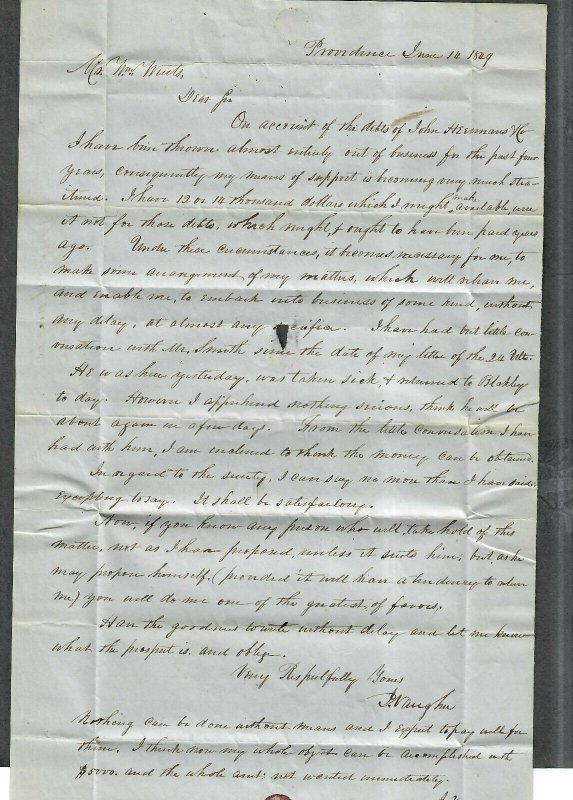 Providence June 14 1849
Mr. Wm
Dear Sir
On account of the debts of John Hermans & Co
I have bin thrown almost entirely out of business for the past four
years, consequently my means of support is becoming very much strai-
tined. I have 12 or 14 thousand dollars which I might make available were
it not for those debts, which might, & ought to have bin, paid years
ago. Under these circumstances, it becomes necessary for me, to
make some arrangement, of my matters, which will relieve me,
and enable me, to embark into business of some kind, without
any delay, at almost any sacrifice. I have had but little con-
versation with Mr. Smith since the date of my letter of the 24 Ulto.
He was here yesterday, was taken sick & returned to Blakley
to day. However I apprehend nothing serious, think he will be
about again in a few days. From the little conversation I have
had with him, I am enclined to think the money can be obtained.
In regard to the surety, I can say no more than I have said:
Excepting to say. It shall be satisfactory.
Now, if you know any person who will, take hold of this
matter, not as I have proposed, unless it suits him; but, as he
may propose himself, (provided it will have a tendency to relieve
me) you will do me one of the greatest of favors.
Have the goodness to write without delay and let me know
what the prospect is. and oblige.
Very Respectfully Yours
P. Vaughn
Nothing can be done without means and I expect to pay well for
them. I think now my whole object can be accomplished with
$5000. and the whole not wanted immediately.